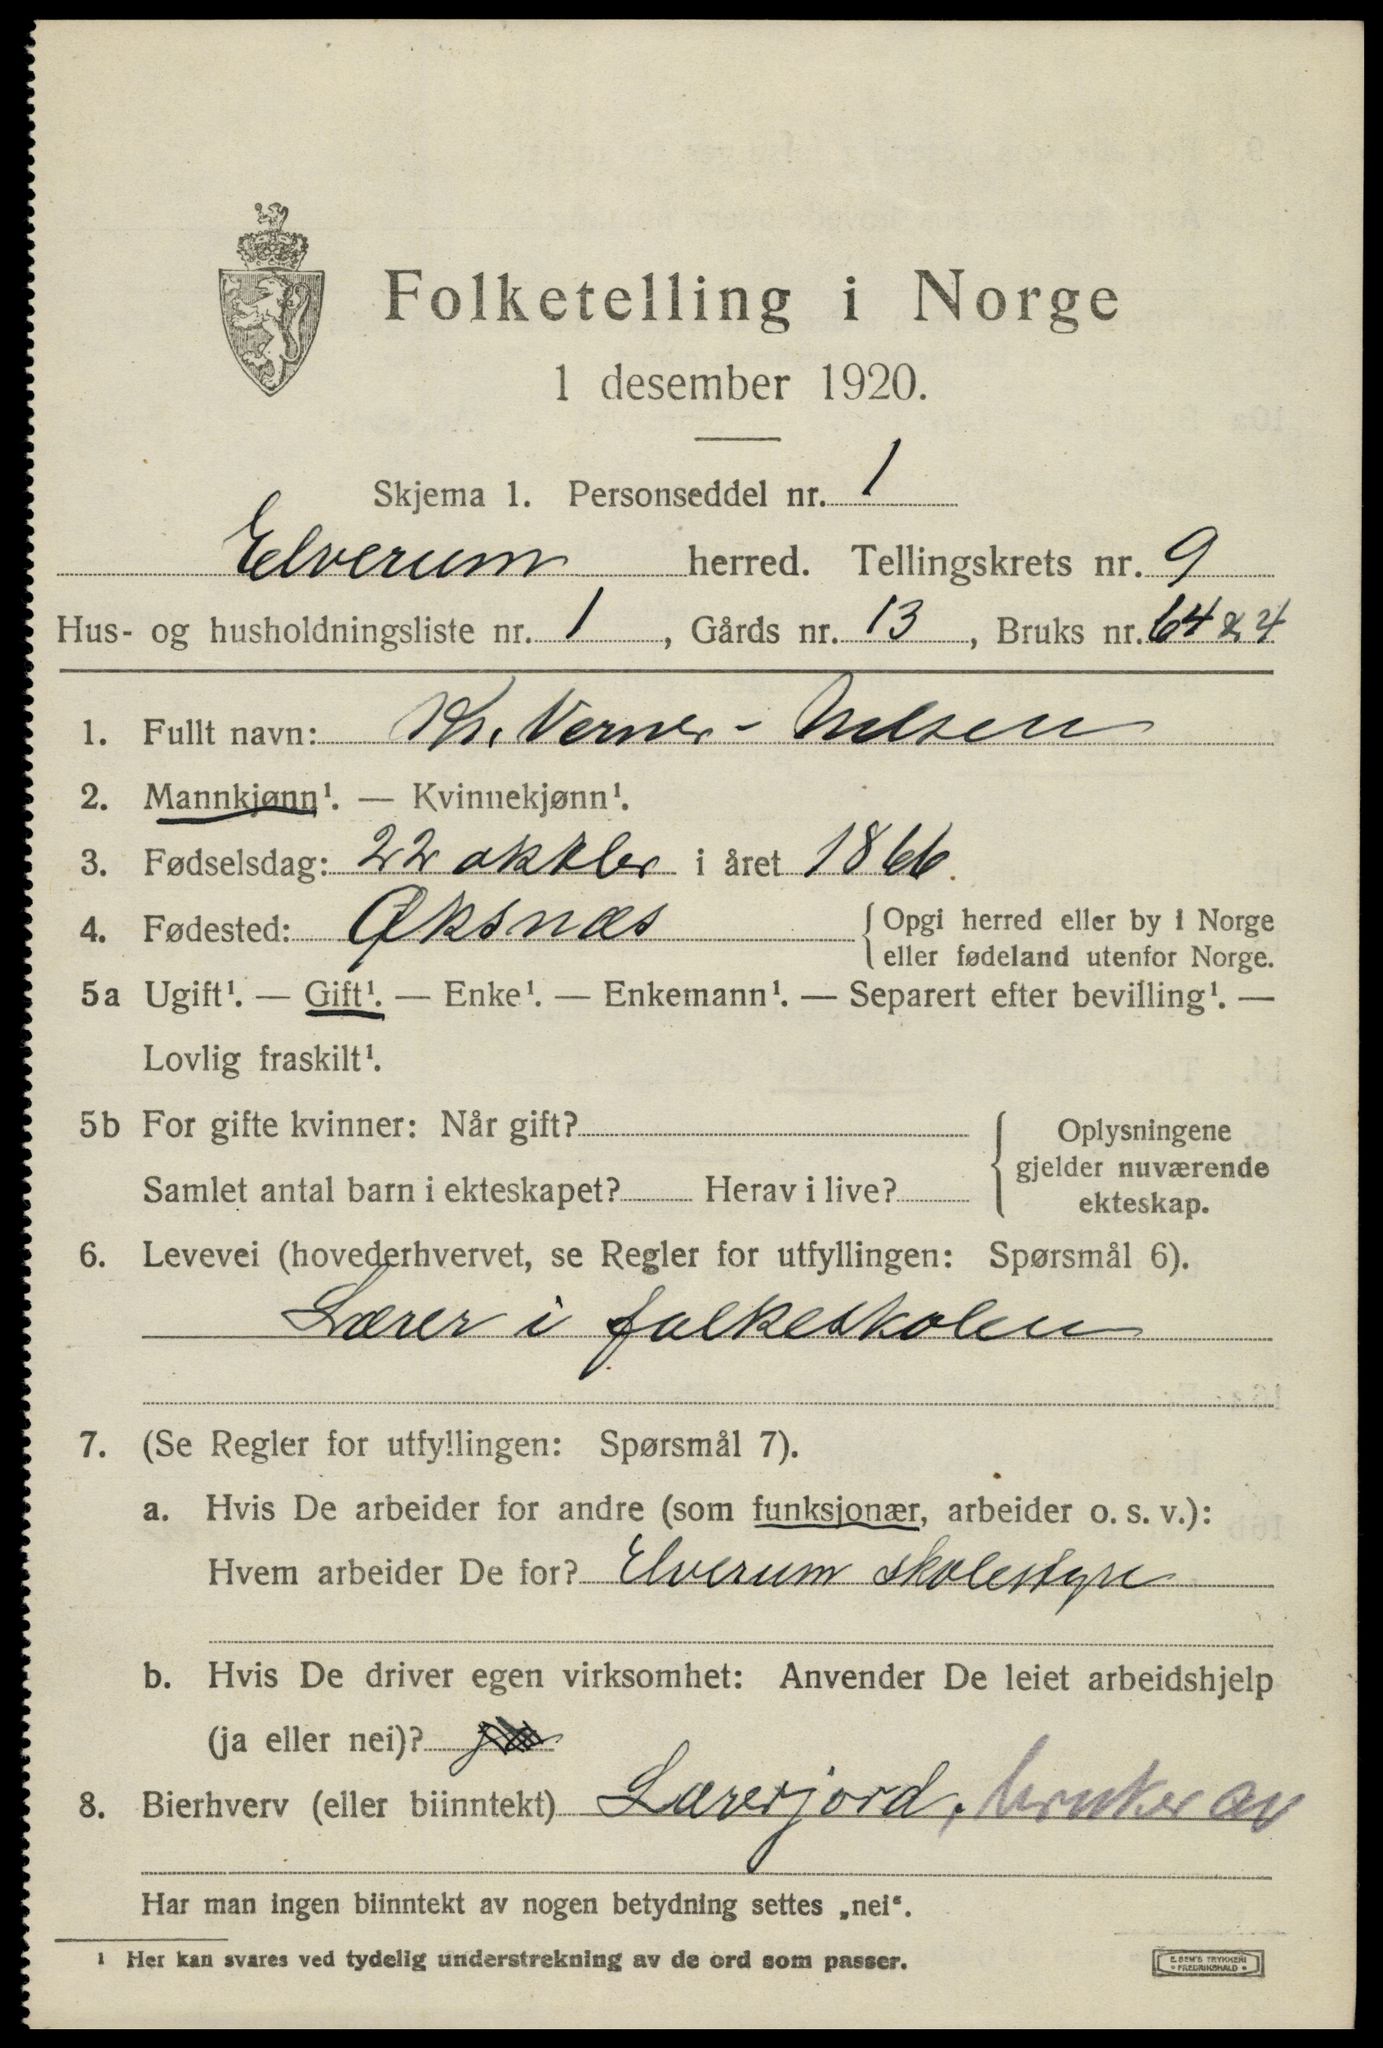 Folketelling i Norge
1 desember 1920.
Skjema 1. Personseddel nr. 1
Elverum herred. Tellingskrets nr. 9
Hus- og husholdningsliste nr. 1, Gårds nr. 13, Bruks nr. 64 & 4
1. Fullt navn: Kr. Verner-Nilsen
2. Mannkjønn¹. — Kvinnekjønn¹.
3. Fødselsdag: 22 oktbr i året 1866.
4. Fødested: Øksnæs { Opgi herred eller by i Norge
eller fødeland utenfor Norge.
5a Ugift¹. — Gift¹. — Enke¹. — Enkemann¹. — Separert efter bevilling¹. —
Lovlig fraskilt¹.
5b For gifte kvinner: Når gift?
Samlet antal barn i ekteskapet? Herav i live?
{ Oplysningene
gjelder nuværende
ekteskap.
6. Levevei (hovederhvervet, se Regler for utfyllingen: Spørsmål 6).
Lærer i folkeskolen
7. (Se Regler for utfyllingen: Spørsmål 7).
a. Hvis De arbeider for andre (som funksjonær, arbeider o. s. v.):
Hvem arbeider De for? Elverum skolestyre
b. Hvis De driver egen virksomhet: Anvender De leiet arbeidshjelp
(ja eller nei)?
8. Bierhverv (eller biinntekt) Lærerjord, bruker av
Har man ingen biinntekt av nogen betydning settes „nei“.
¹ Her kan svares ved tydelig understrekning av de ord som passer.
E. SEM'S TRYKKERI
• FREDRIKSHALD •